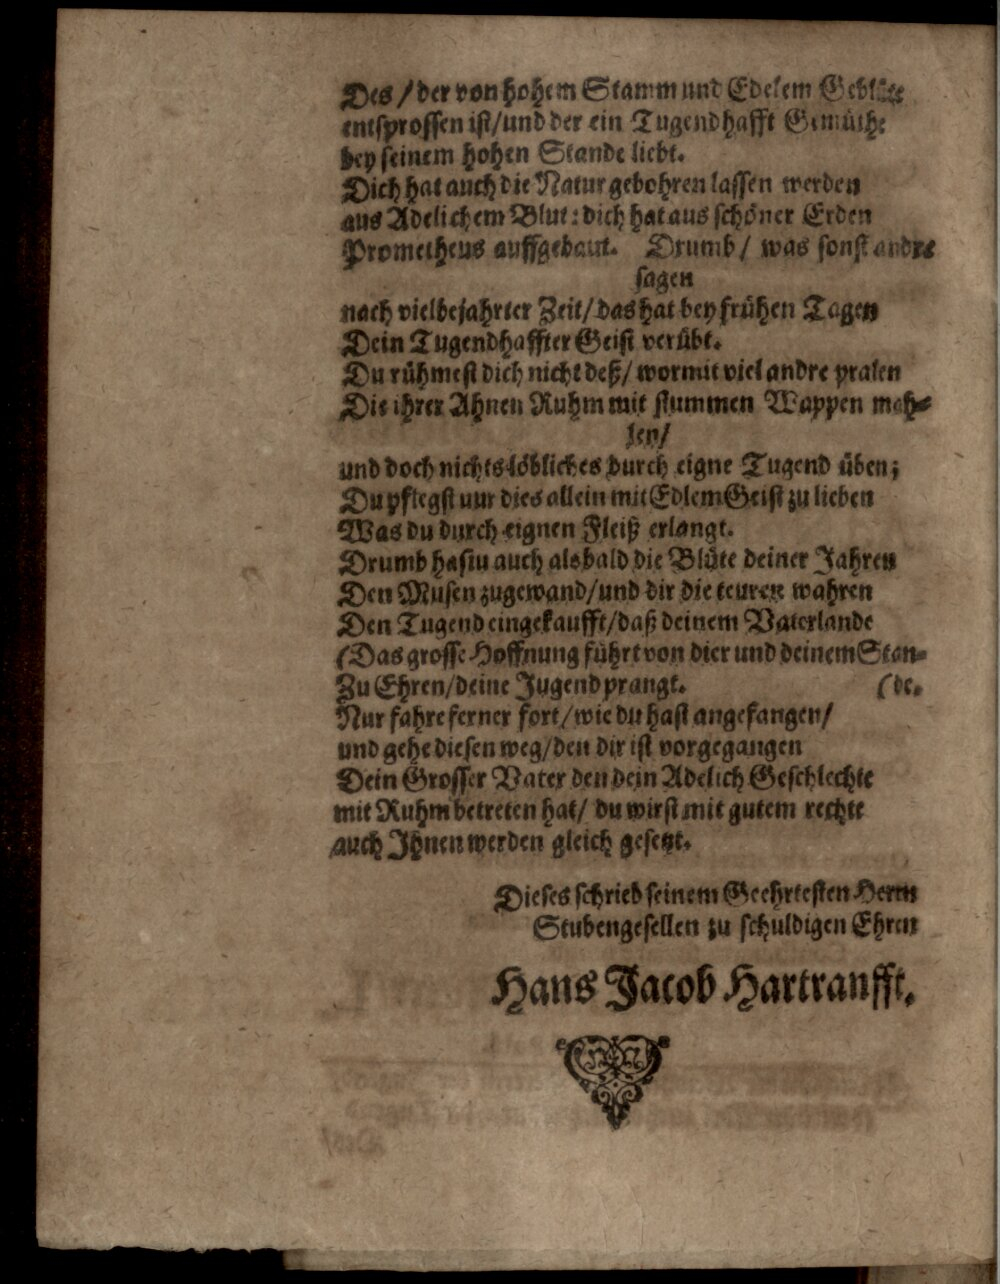 Des / der von hohem Stamm und Edelem Geblüte
entsprossen ist/und der ein Tugendhafft Gemüthe
bey seinem hohen Stande liebt.
Dich hat auch die Natur gebohren lassen werden
aus Adelichem Blut: dich hat aus schöner Erden
Prometheus auffgebaut. Drumb / was sonst andre
sagen
nach vielbejahrter Zeit/das hat bey frühen Tagen
Dein Tugendhaffter Geist verübt.
Du rühmest dich nicht deß/ wormit viel andre pralen
Die ihrer Ahnen Ruhm mit stummen Wappen mah-
len/
und doch nichts löbliches durch eigne Tugend üben;
Du pflegst uur dies allein mit Edlem Geist zu lieben
Was du durch eignen Fleiß erlangt.
Drumb hastu auch alsbald die Blüte deiner Jahren
Den Musen zugewand/und dir die teuren wahren
Den Tugend eingekaufft/daß deinem Vaterlande
(Das grosse Hoffnung führt von dier und deinem Stan-
Zu Ehren/deine Jugend prangt. (de.
Nur fahre ferner fort/wie du hast angefangen/
und gehe diesen weg/den dir ist vorgegangen
Dein Grosser Vater den dein Adelich Geschlechte
mit Ruhm betreten hat/ du wirst mit gutem rechte
auch Ihnen werden gleich gesetzt.
Dieses schrieb seinem Geehrtesten Herrn
Stubengesellen zu schuldigen Ehren
Hans Jacob Hartranfft.